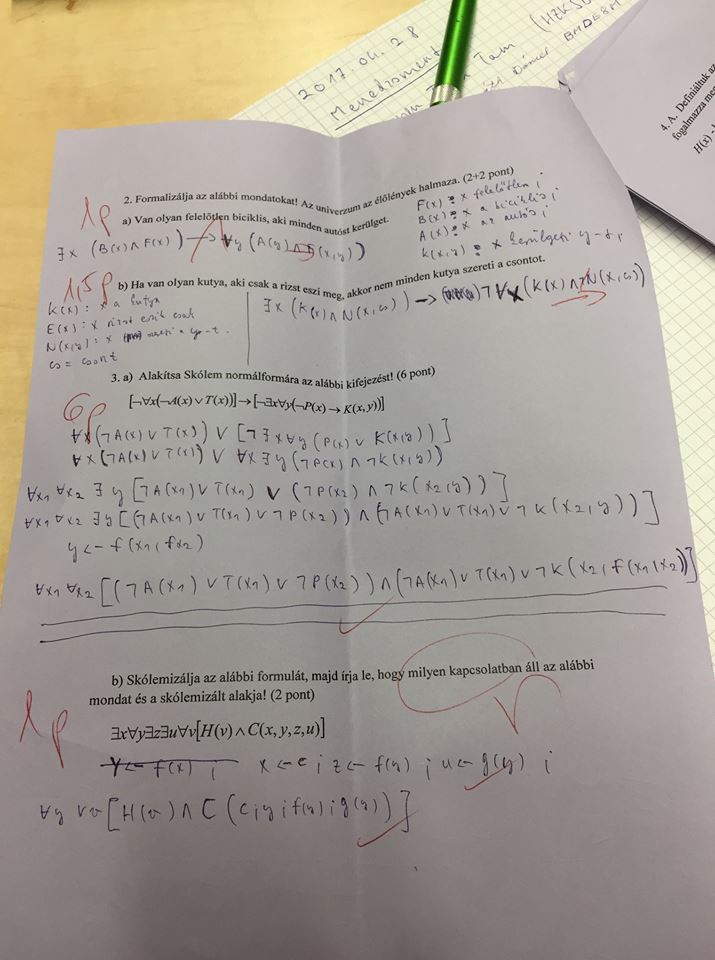 2017.04.28
Menedzsment
4. A. Definiáltuk az
fogalmazza meg
H(x)
2. Formalizálja az alábbi mondatokat! Az univerzum az élőlények halmaza. (2+2 pont)
1p
a) Van olyan felelőtlen biciklis, aki minden autóst kerülget.
F(x) : x felelőtlen ;
B(x) : x a biciklis ;
A(x) : x az autós ;
K(x,y) : x kerülgeti y-t ;
∃x (B(x) ∧ F(x)) → ∀y (A(y) ∧ F(x,y))
1,5p
b) Ha van olyan kutya, aki csak a rizst eszi meg, akkor nem minden kutya szereti a csontot.
K(x) : x a kutya
E(x) : x rizst eszik csak
N(x,y) : x szereti a y-t.
cs = csont
∃x (K(x) ∧ N(x,cs)) → ¬∀x (K(x) ∧ ¬N(x,cs))
3. a) Alakítsa Skólem normálformára az alábbi kifejezést! (6 pont)
6p
[¬∀x(¬A(x) ∨ T(x))] → [¬∃x∀y(¬P(x) → K(x,y))]
∀x (¬A(x) ∨ T(x)) ∨ [¬∃x∀y (P(x) ∨ K(x,y))]
∀x (¬A(x) ∨ T(x)) ∨ ∀x∃y (¬P(x) ∧ ¬K(x,y))
∀x1 ∀x2 ∃y [¬A(x1) ∨ T(x1) ∨ (¬P(x2) ∧ ¬K(x2,y))]
∀x1 ∀x2 ∃y [(¬A(x1) ∨ T(x1) ∨ ¬P(x2)) ∧ (¬A(x1) ∨ T(x1) ∨ ¬K(x2,y))]
y ← f(x1, fx2)
∀x1 ∀x2 [(¬A(x1) ∨ T(x1) ∨ ¬P(x2)) ∧ (¬A(x1) ∨ T(x1) ∨ ¬K(x2, f(x1,x2))]
b) Skólemizálja az alábbi formulát, majd írja le, hogy milyen kapcsolatban áll az alábbi
mondat és a skólemizált alakja! (2 pont)
1p
∃x∀y∃z∃u∀v[H(v) ∧ C(x,y,z,u)]
Y ← f(x) ; x ← c ; z ← f(y) ; u ← g(y) ;
∀y ∀v [H(v) ∧ C (c;y;f(y);g(y))]